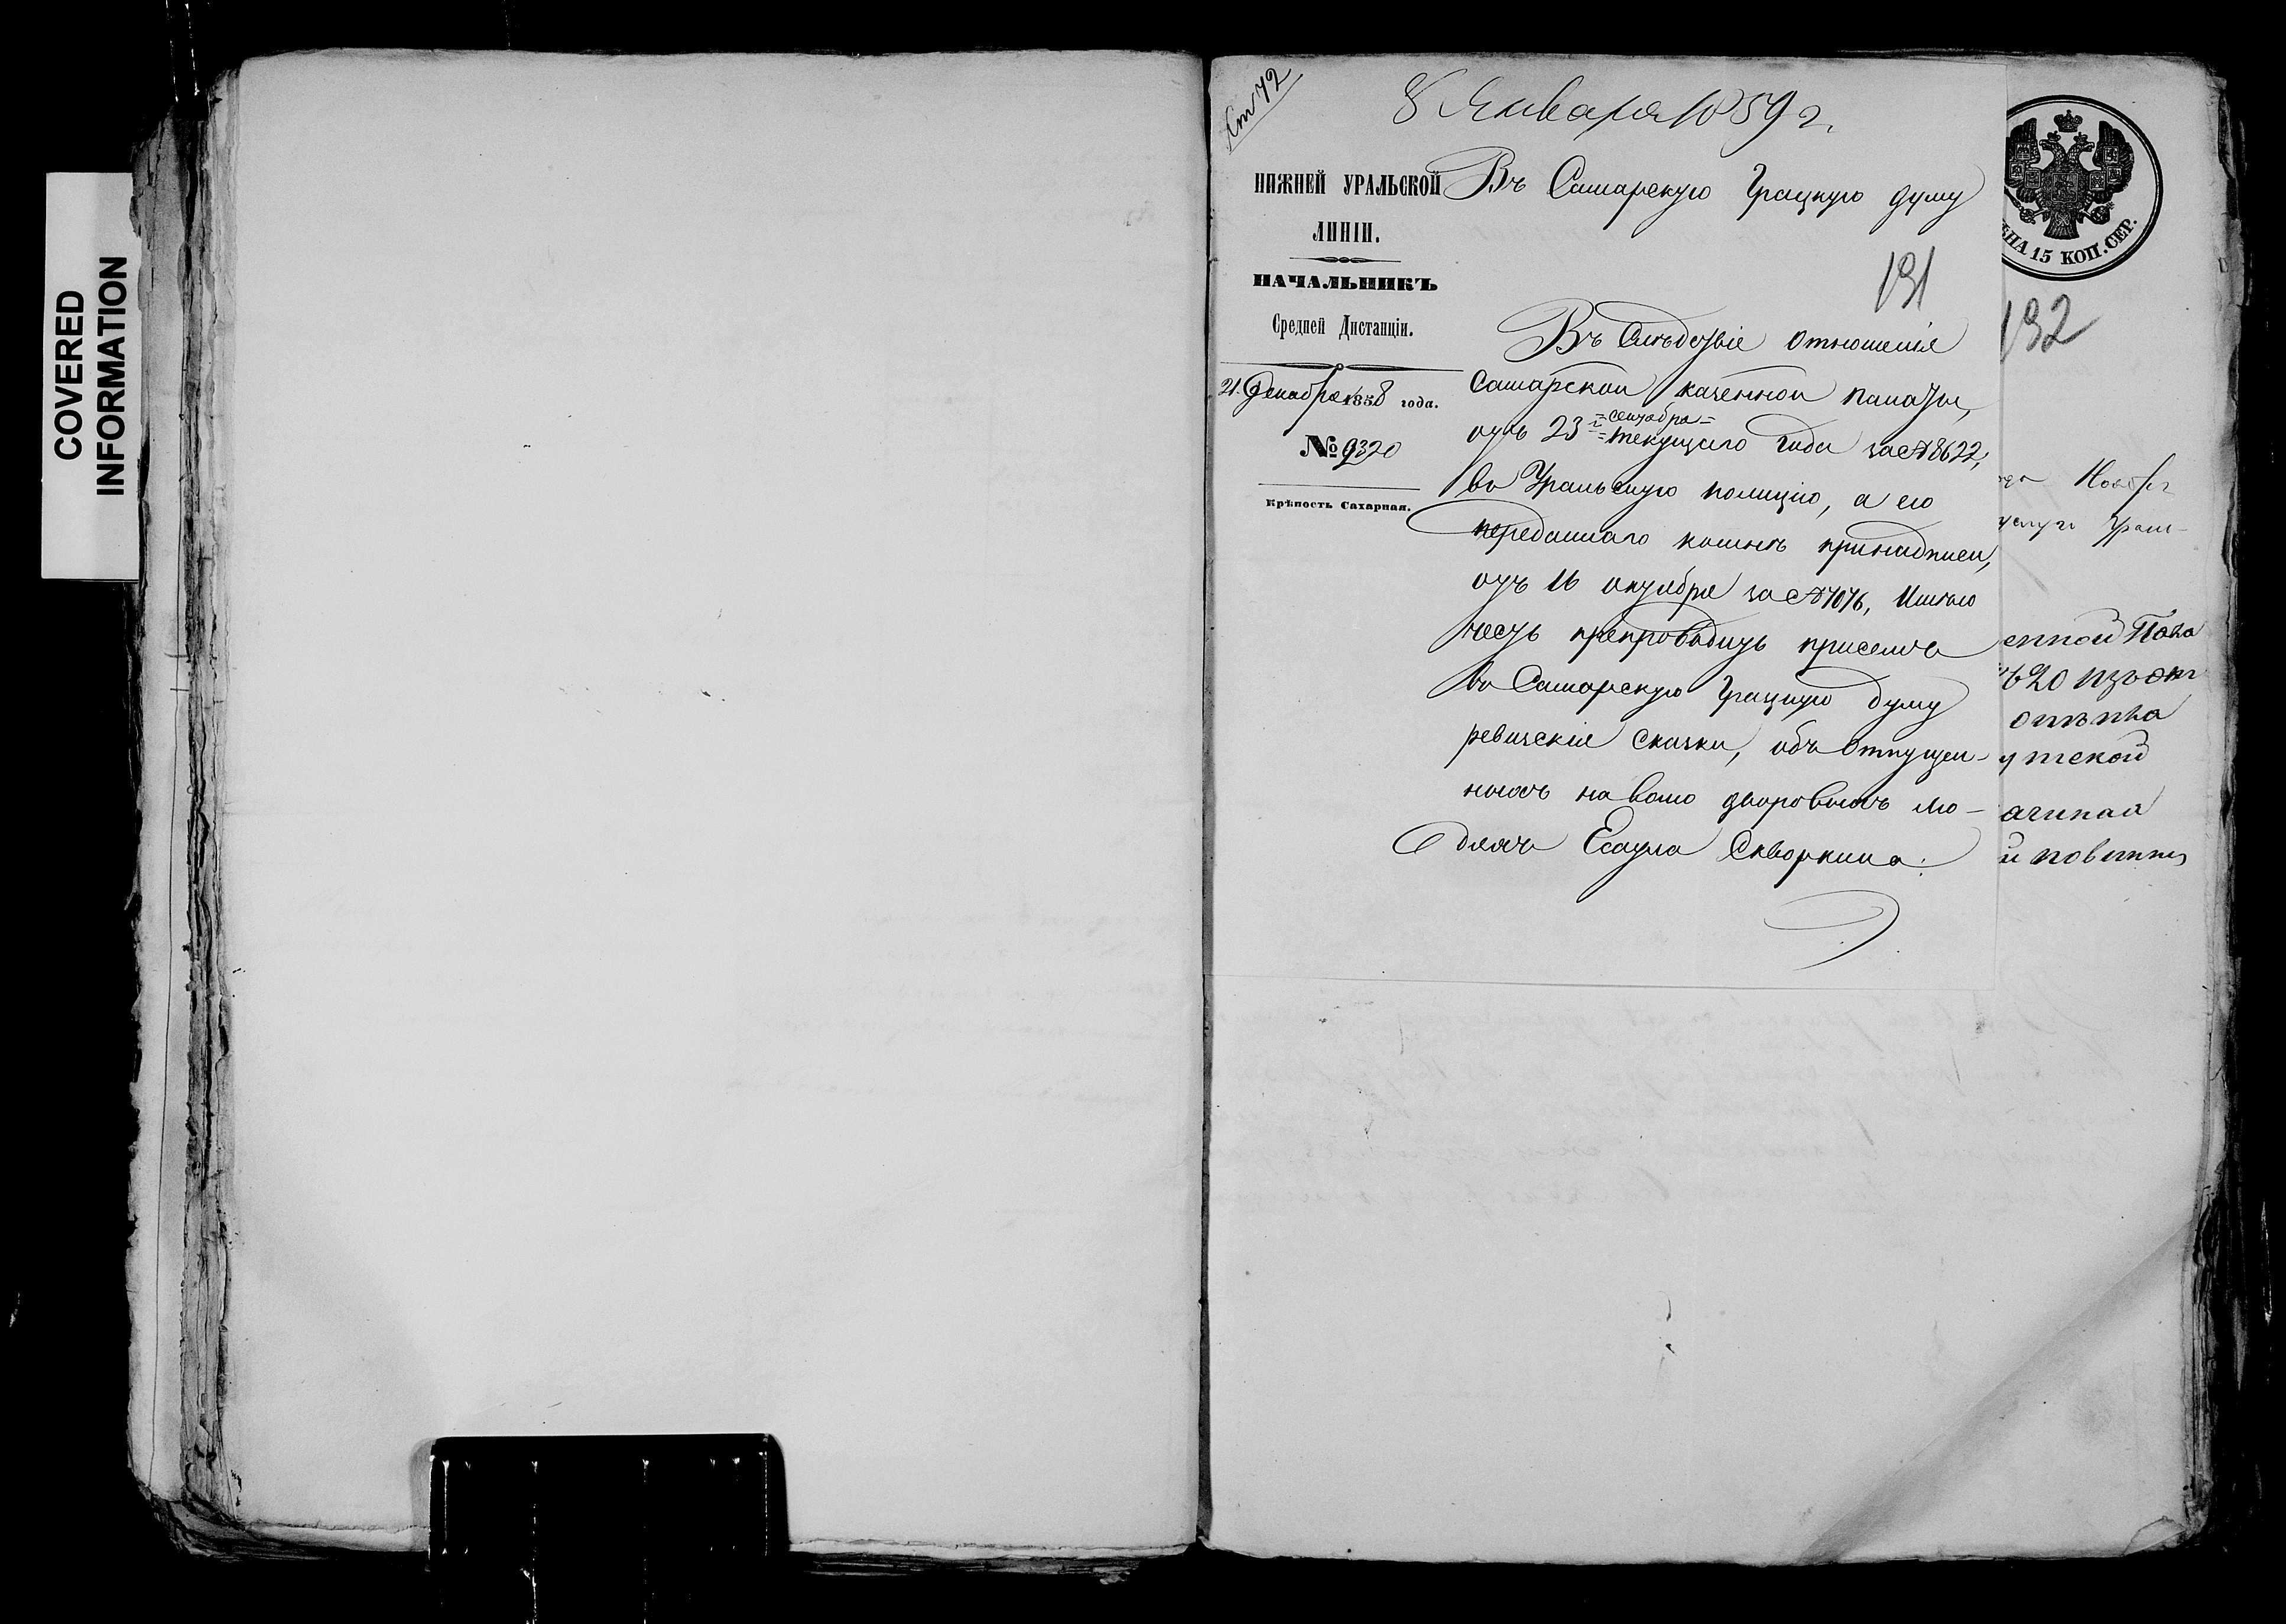 COVERED
INFORMATION
Ст 72
8 Января 1859 г.
НИЖНЕЙ УРАЛЬСКОЙ
ЛИНІИ.
НАЧАЛЬНИКЪ
Средней Дистанціи.
21 Декабря 1858 года.
№ 9320
Крѣпость Сахарная.
Въ Самарскую Градскую думу
191
Въ Слѣдствіе отношенія
Самарской казенной палаты,
отъ 23 сентября текущаго года за № 8622,
въ Уральскую полицію, а ею
переданнаго ко мнѣ при надписи,
отъ 16 октября за № 7076, Имѣю
честь препроводить при семъ
въ Самарскую Градскую думу
ревизскіе сказки, объ отпущен-
ныхъ на волю дворовыхъ лю-
дяхъ Есаула Скворкина.
ЦѢНА 15 КОП. СЕР.
192
Ноября
услуги Урал-
енной Пала
620 изъ
опѣка
утской
ачинал
й повинны